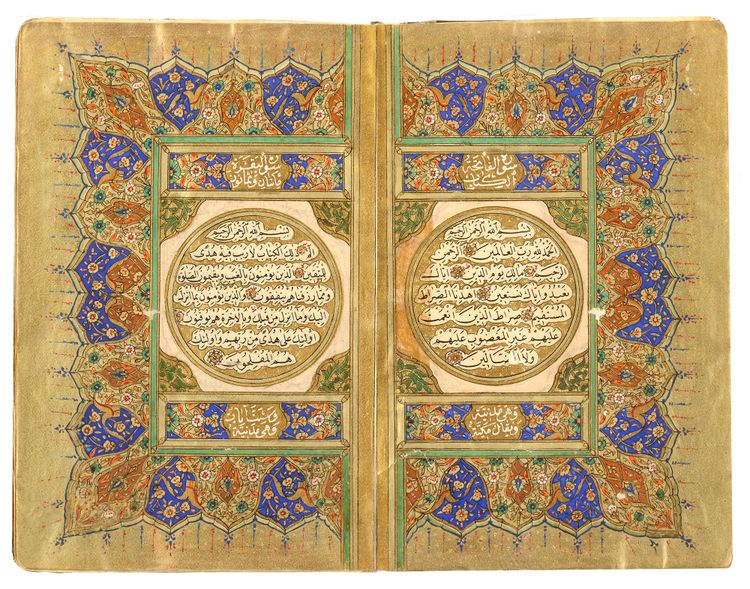 سورة الفاتحة
الكتاب
بسم الله الرحمن الرحيم
الحمد لله رب العالمين الرحمن
الرحيم مالك يوم الدين اياك
نعبد واياك نستعين اهدنا الصراط
المستقيم صراط الذين انعمت
عليهم غير المغضوب عليهم
ولا الضالين
وهى مدنية
ويقال مكية
سورة البقرة
مائتان وثمانون
بسم الله الرحمن الرحيم
الم ذلك الكتاب لا ريب فيه هدى
للمتقين الذين يؤمنون بالغيب ويقيمون الصلوة
ومما رزقناهم ينفقون والذين يؤمنون بما انزل
اليك وما انزل من قبلك وبالاخرة هم يوقنون
اولئك على هدى من ربهم واولئك
هم المفلحون
وست ايات
وهى مدنية